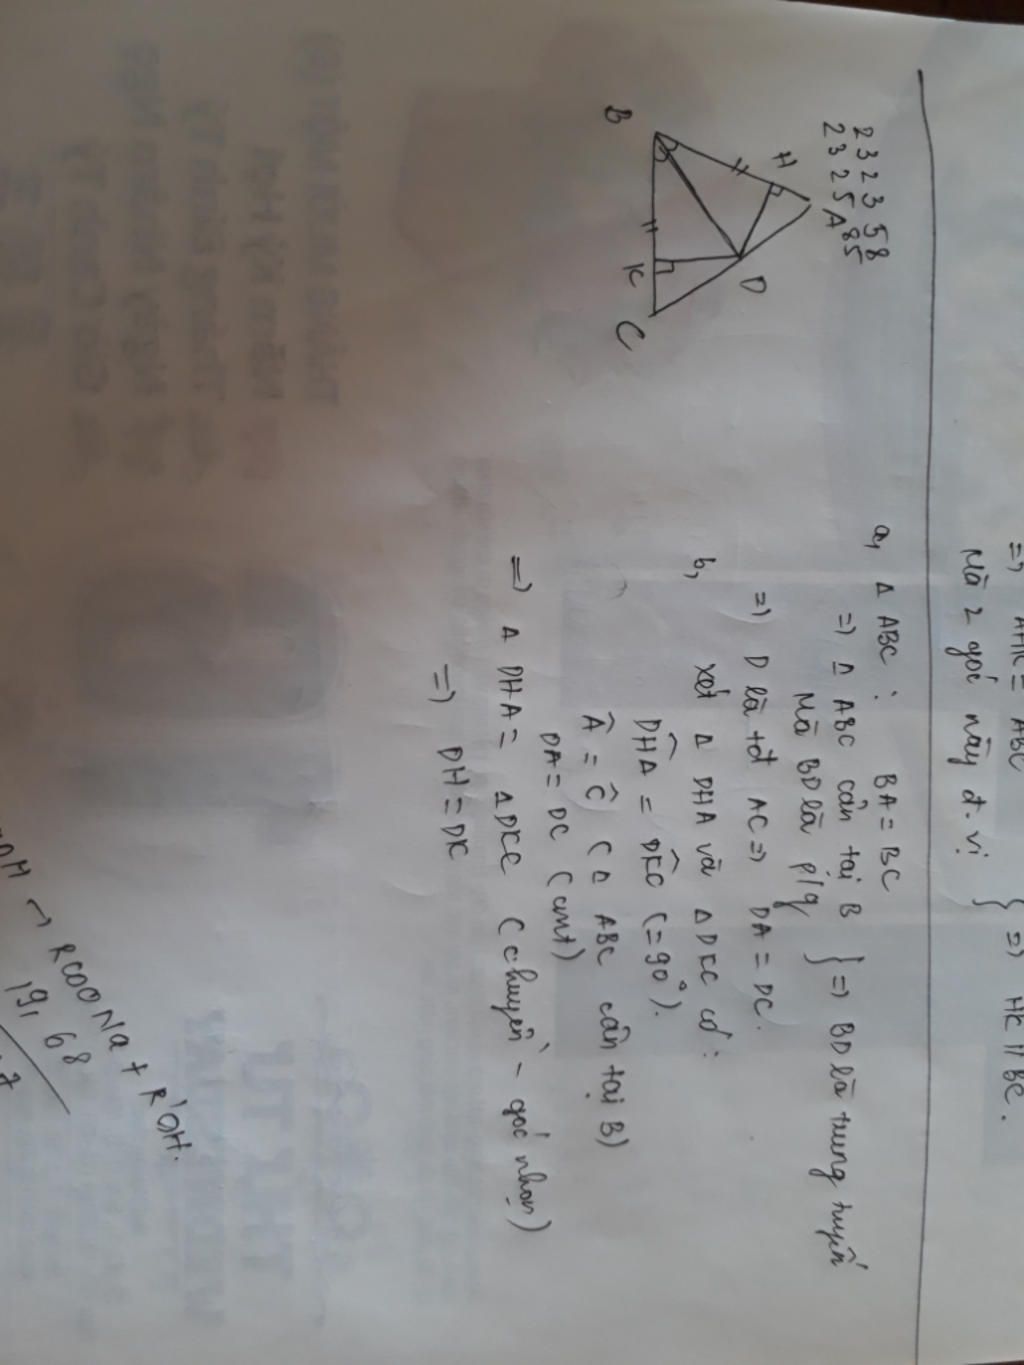 => AHK = ABC
Mà 2 góc này đ.vị } => HK // BC.
2 3 2 3 5 8
2 3 2 5 8 5
A
H
B
D
K
C
a, Δ ABC : BA = BC
=> Δ ABC cân tại B
Mà BD là p/g } => BD là trung tuyến
=> D là tđ AC => DA = DC.
b, xét Δ DHA và Δ DKC có :
DHA = DKC (= 90°).
Â = Ĉ ( Δ ABC cân tại B)
DA = DC (cmt)
=> Δ DHA = Δ DKC (c.huyền - góc nhọn)
=> DH = DK
→ RCOONa + R'OH.
19,68